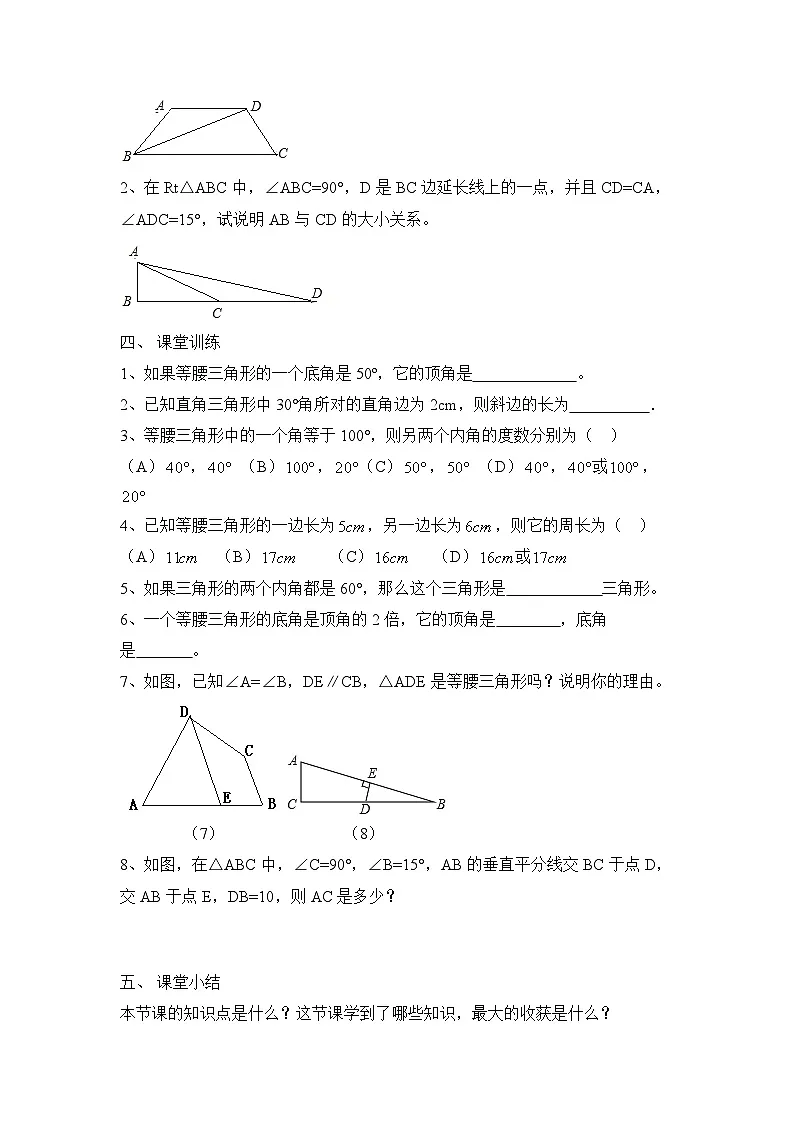 A D
B C
2、在 Rt△ABC 中，∠ABC=90°，D 是 BC 边延长线上的一点，并且 CD=CA，
∠ADC=15°，试说明 AB 与 CD 的大小关系。
A
B C D
四、 课堂训练
1、如果等腰三角形的一个底角是 50°，它的顶角是_____________。
2、已知直角三角形中 30°角所对的直角边为 2cm，则斜边的长为__________.
3、等腰三角形中的一个角等于 100°，则另两个内角的度数分别为（ ）
（A）40°，40° （B）100°，20°（C）50°，50° （D）40°，40°或100°，
20°
4、已知等腰三角形的一边长为5cm，另一边长为6cm，则它的周长为（ ）
（A）11cm （B）17cm （C）16cm （D）16cm或17cm
5、如果三角形的两个内角都是 60°，那么这个三角形是____________三角形。
6、一个等腰三角形的底角是顶角的 2 倍，它的顶角是________，底角
是_______。
7、如图，已知∠A=∠B，DE∥CB，△ADE 是等腰三角形吗？说明你的理由。
D
C
A E B
A
E
C D B
（7） （8）
8、如图，在△ABC 中，∠C=90°，∠B=15°，AB 的垂直平分线交 BC 于点 D，
交 AB 于点 E，DB=10，则 AC 是多少？
五、 课堂小结
本节课的知识点是什么？这节课学到了哪些知识，最大的收获是什么？